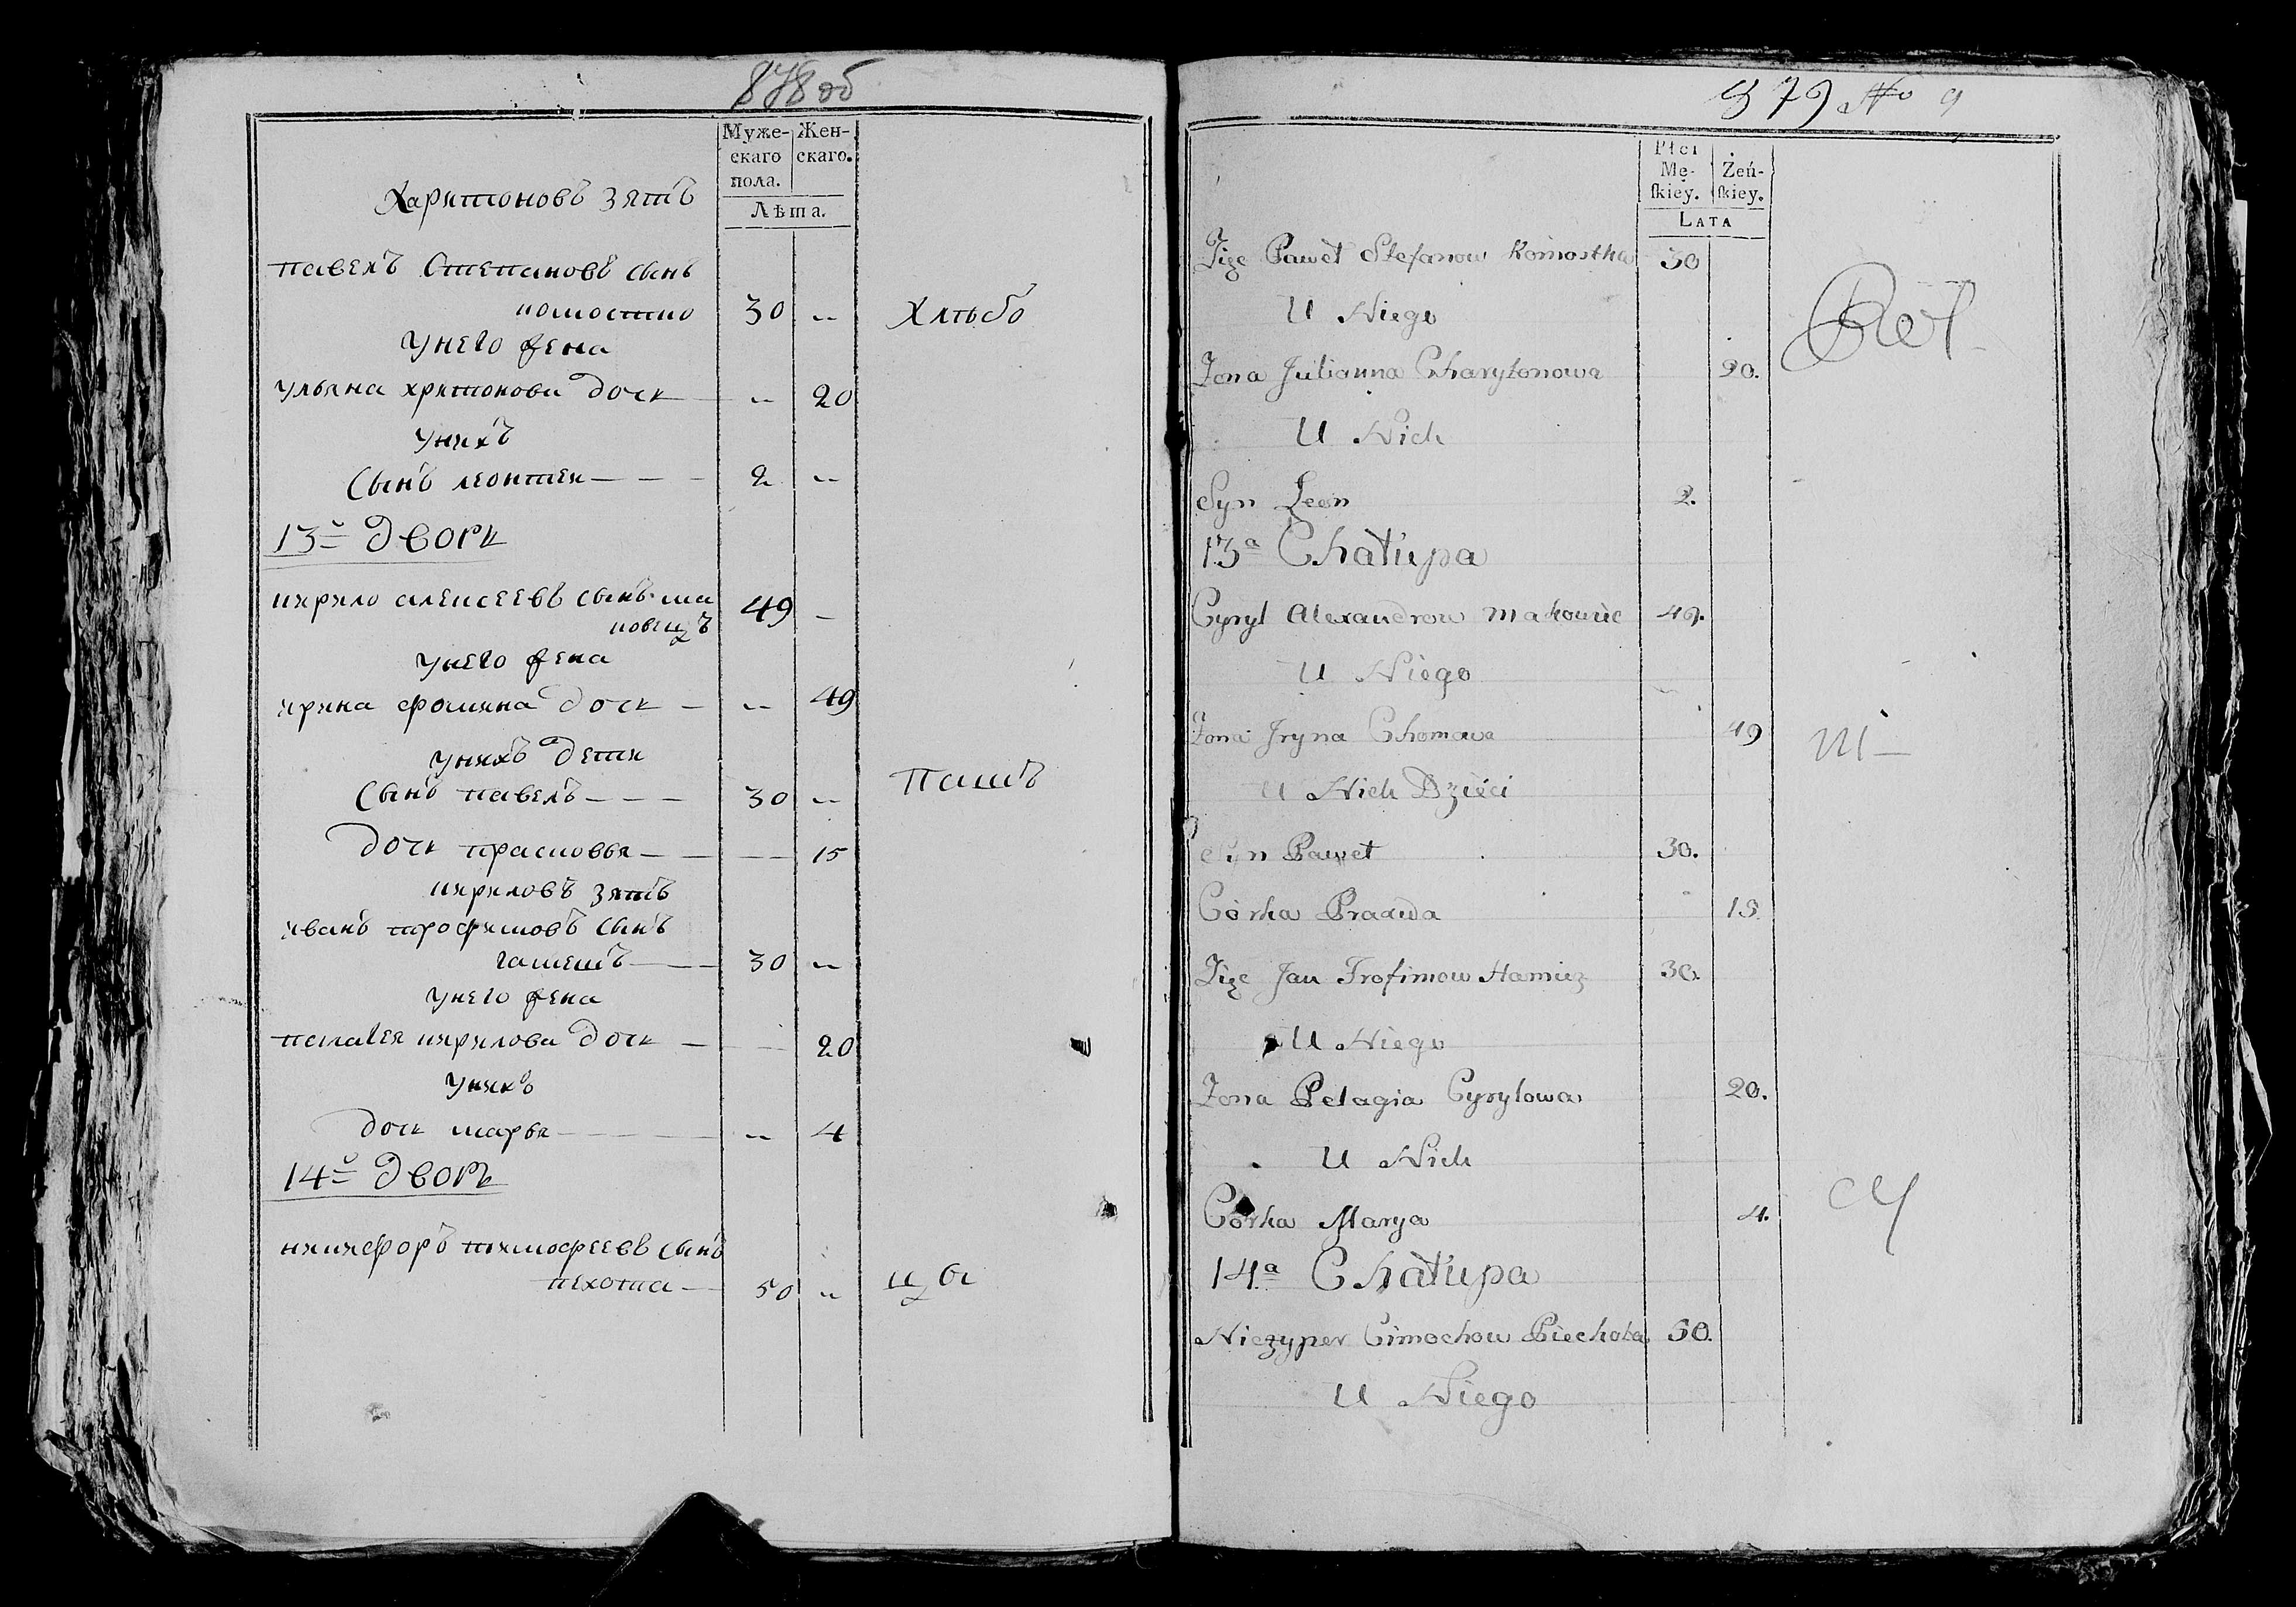 878 об
Муже-
скаго
пола.
Жен-
скаго.
Лѣта.
Харитоновъ зять
павелъ Степановъ сынъ
комостко 30 „ Хлѣбо
Унего жена
ульяна хритонова дочь — „ 20
Унихъ
Сынъ леонтеи — — — 2 „
13й дворъ
кирило алексеевъ сынъ ма
ковецъ 49 —
Унего жена
ирина фомина дочь — „ 49
Унихъ дети
Сынъ павелъ — — — 30 „ Пашъ
дочь прасковья — — — 15
кириловъ зять
иванъ трофимовъ сынъ
гамешъ — — 30 „
Унего жена
пелагея кирилова дочь — — 20
Унихъ
дочь марья — — — „ 4
14й дворъ
никифоръ тимофеевъ сынъ
пехота — 50 „
879 No 9
Płci
Mę-
ſkiey.
Żeń-
ſkiey.
LATA
Zięc Paweł Stefanow Komostka 30
U Niego
Żona Julianna Charytonowa 20.
U Nich
Syn Leon 2.
13a Chałupa
Cyryl Alexandrow Makowiec 49.
U Niego
Żona Jryna Chomowa 49
U Nich Dzieci
Syn Paweł 30.
Córka Praxeda 15.
Zięc Jan Trofimow Hamiez 30.
U Niego
Żona Pelagia Cyrylowa 20.
U Nich
Córka Marya 4.
14a Chałupa
Niczyper Cimochow Piechota 50.
U Niego